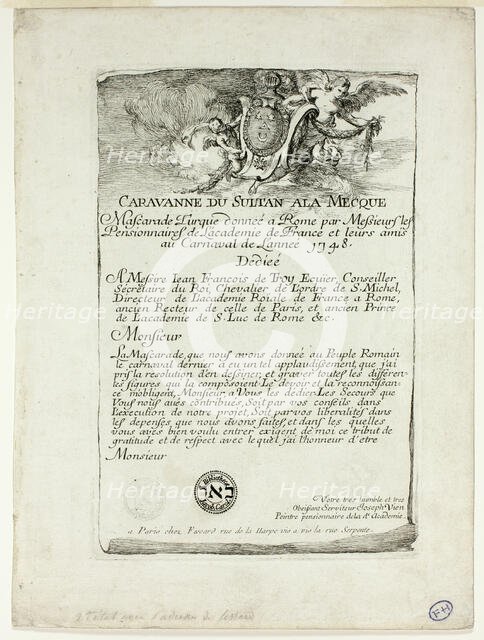 CARAVANNE DU SULTAN ALA MECQUE
Mascarade Turque donneé a Rome par Messieurs les
Pensionnaires de L'academie de France et leurs amis
au Carnaval de L'anneé 1748.
Dedieé
A Messire Iean François de Troy Ecuier, Conseiller
Secretaire du Roi, Chevalier de L'ordre de S. Michel,
Directeur de L'academie Roiale de France a Rome,
ancien Recteur de celle de Paris, et ancien Prince
de L'academie de S. Luc de Rome &c.
Monsieur
La Mascarade, que nous avons donneé au Peuple Romain
le carnaval dernier à eu un tel applaudisement, que j'ai
pris la resolution d'en dessiner, et graver toutes les differen-
tes figures qui la composoient. Le devoir et la reconnoissan-
ce m'obligent, Monsieur, a Vous les dedier. Les Secours que
Vous nous aves contribués, Soit par vos conseils dans
L'execution de notre projet, Soit par vos liberalités dans
les depenses que nous avons faites, et dans les quelles
vous aves bien voulu entrer exigent de moi ce tribut de
gratitude et de respect avec lequel j'ai l'honneur d'etre
Monsieur
Votre tres humble et tres
Obeissant Serviteur Joseph Vien
Peintre pensionnaire de la dᵉ Academie.
a Paris chez Favard rue de la Harpe vis a vis la rue Serpente.
FH
Heritage
Heritage
Heritage
Heritage
Heritage
Heritage